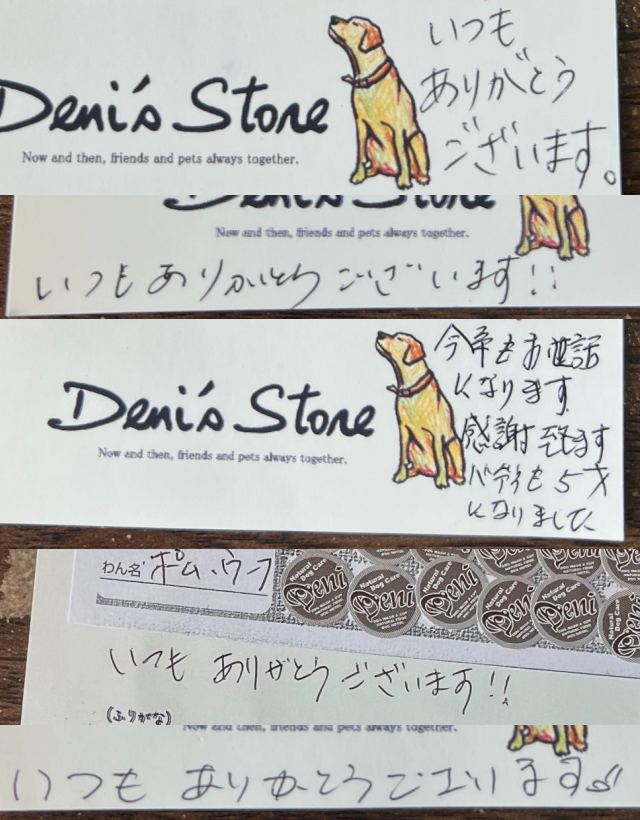 Deni's Store
Now and then, friends and pets always together.
いつも
ありがとう
ございます。
Deni's Store
Now and then, friends and pets always together.
いつもありがとうございます!!
Deni's Store
Now and then, friends and pets always together.
今年もお世話
になります
感謝致ます
バディも5才
になりました
わん名 ポム、ウフ
Natural Dog Care Deni
Natural Dog Care Deni
Natural Dog Care Deni
Natural Dog Care Deni
Natural Dog Care Deni
いつも ありがとうございます!!
(ふりがな)
Now and then, friends and pets always together.
いつも ありがとうございます♪